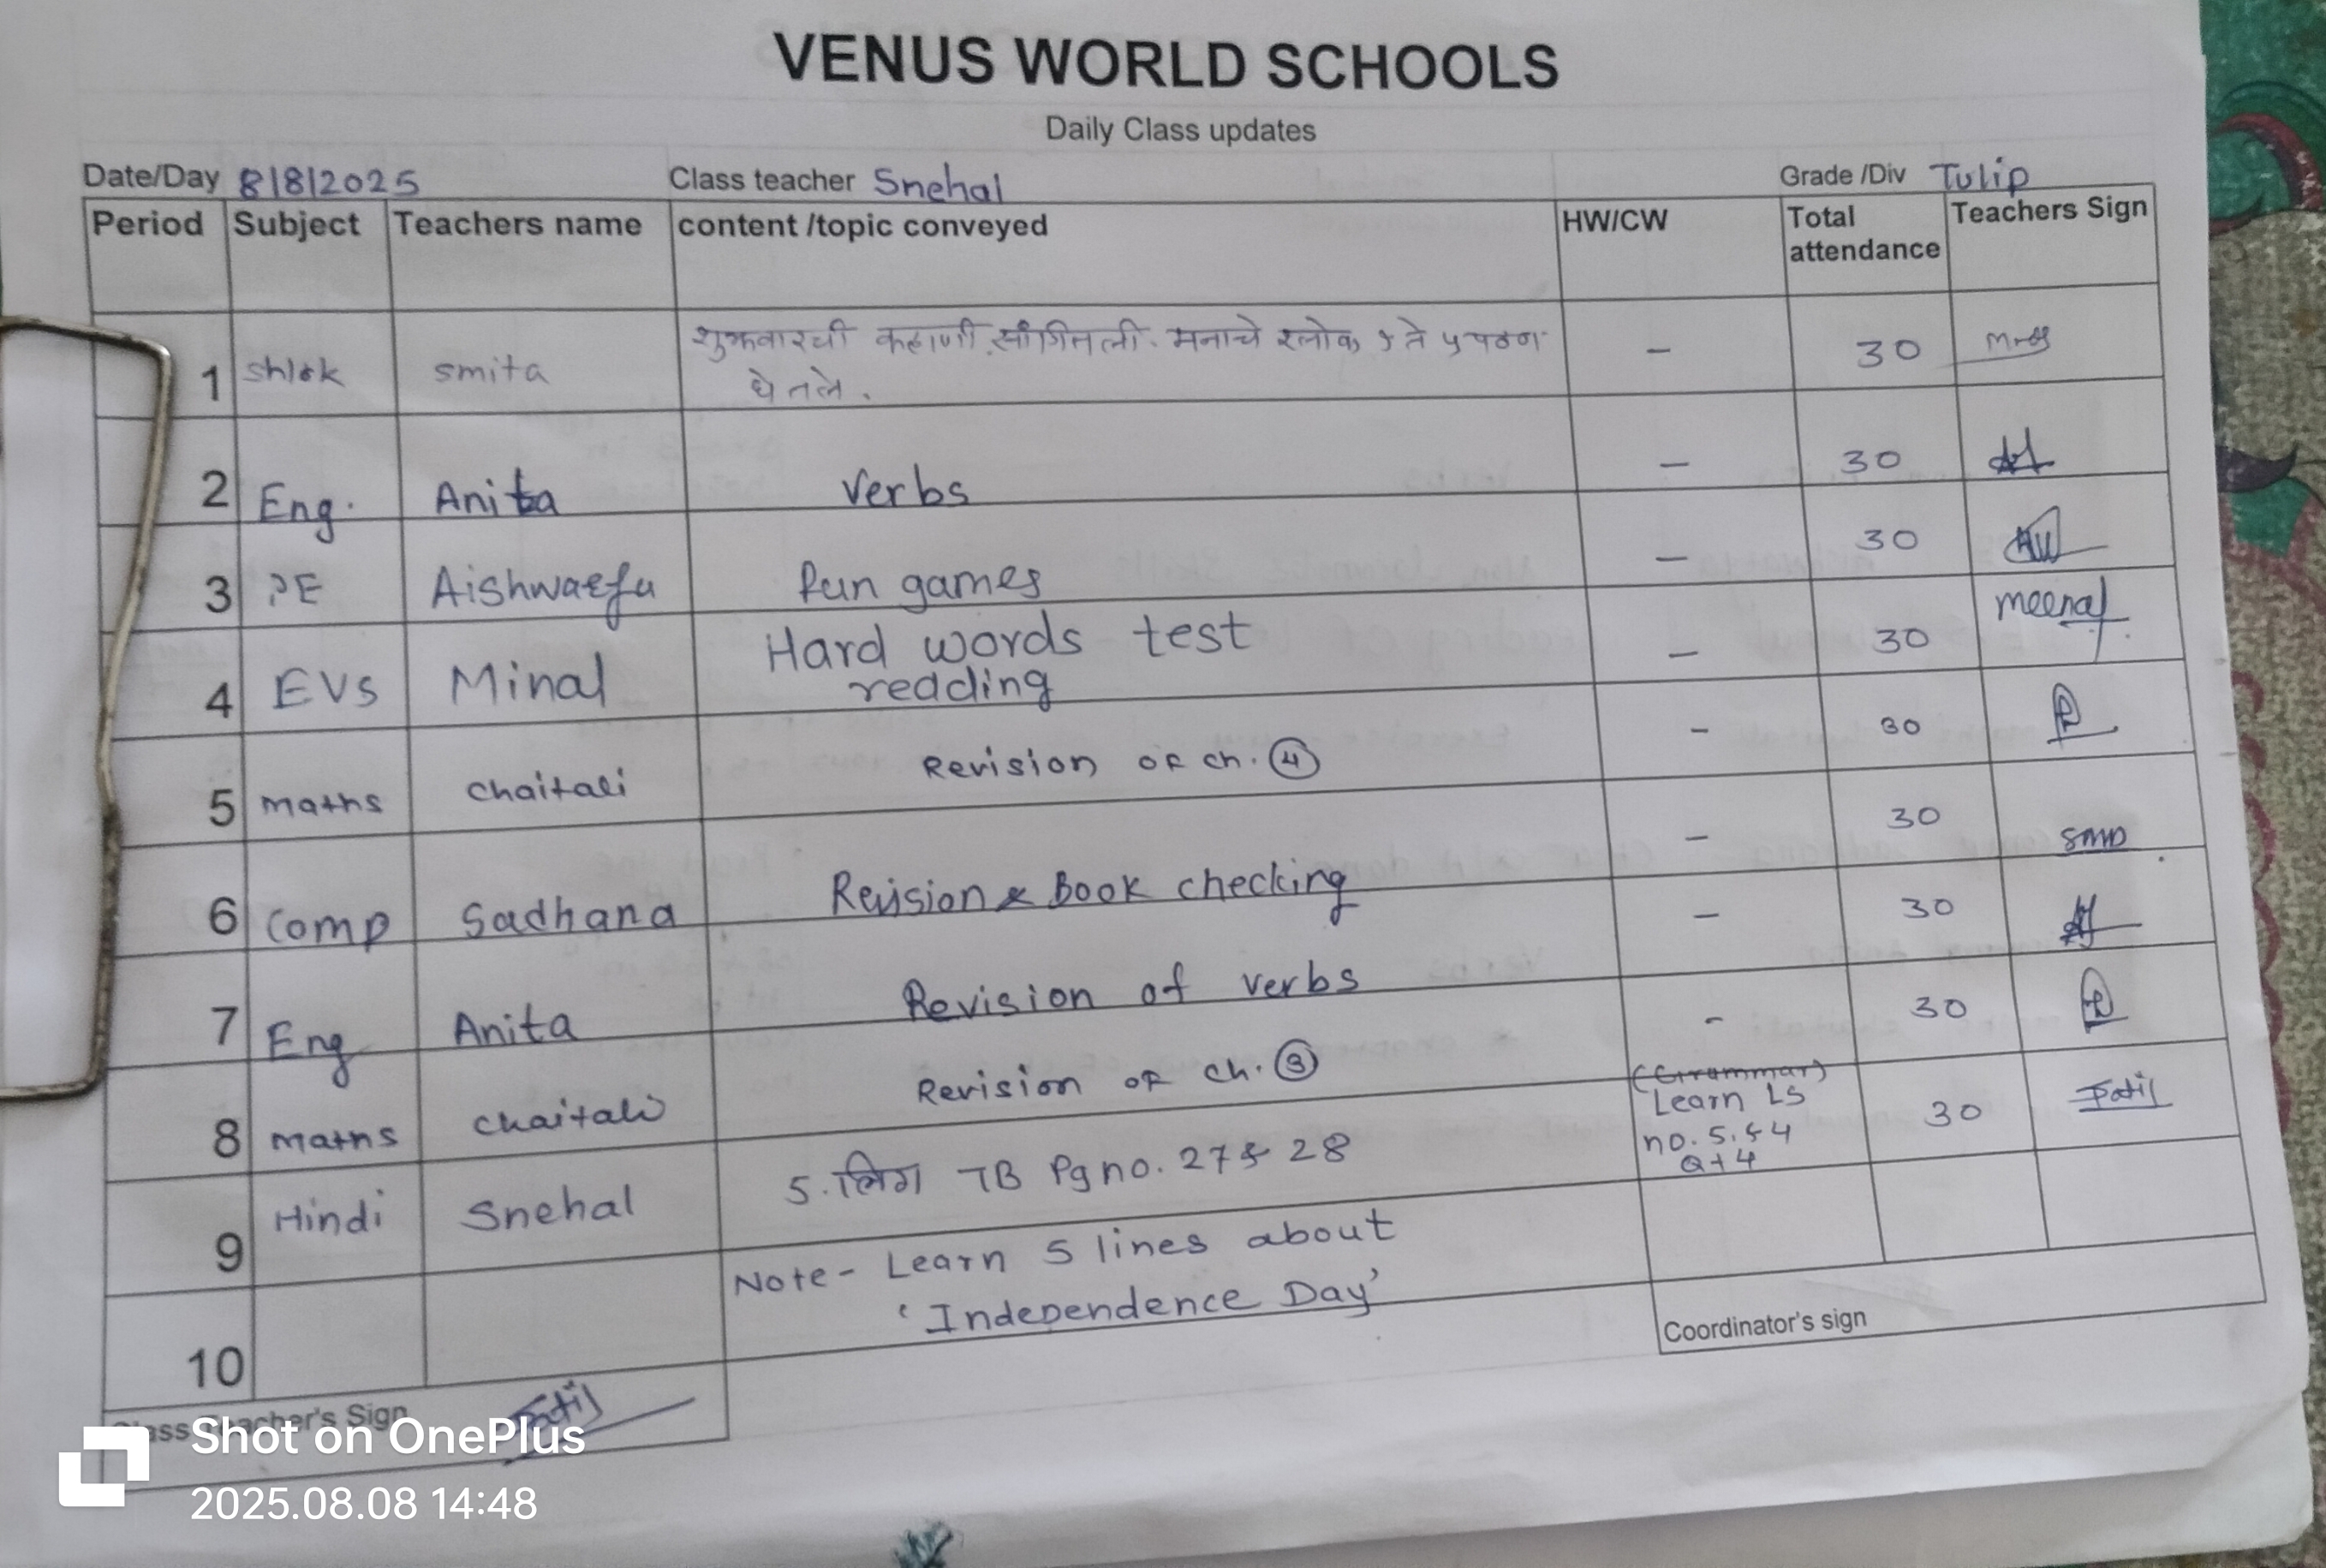 VENUS WORLD SCHOOLS
Daily Class updates
Date/Day 8/8/2025 Class teacher Snehal Grade /Div Tulip
Period Subject Teachers name content /topic conveyed HW/CW Total attendance Teachers Sign
1 shlok smita शुक्रवारची कहाणी सांगितली. मनाचे श्लोक १ ते ५ पठण - 30
घेतले.
2 Eng. Anita verbs - 30
3 PE Aishwarya Run games - 30
4 EVS Minal Hard words test - 30 meenal
redding
5 maths chaitali Revision of ch. 4 - 30
6 Comp Sadhana Revision & Book checking - 30 SMD
7 Eng Anita Revision of verbs - 30
8 maths chaitali Revision of ch. 3 - 30
9 Hindi Snehal 5. लिंग TB Pg no. 27 & 28 (Grammar) 30 Patil
Learn LS
no. 5. & 4
Q + 4
10 Note - Learn 5 lines about
'Independence Day'
Coordinator's sign
Class Teacher's Sign Patil
Shot on OnePlus
2025.08.08 14:48